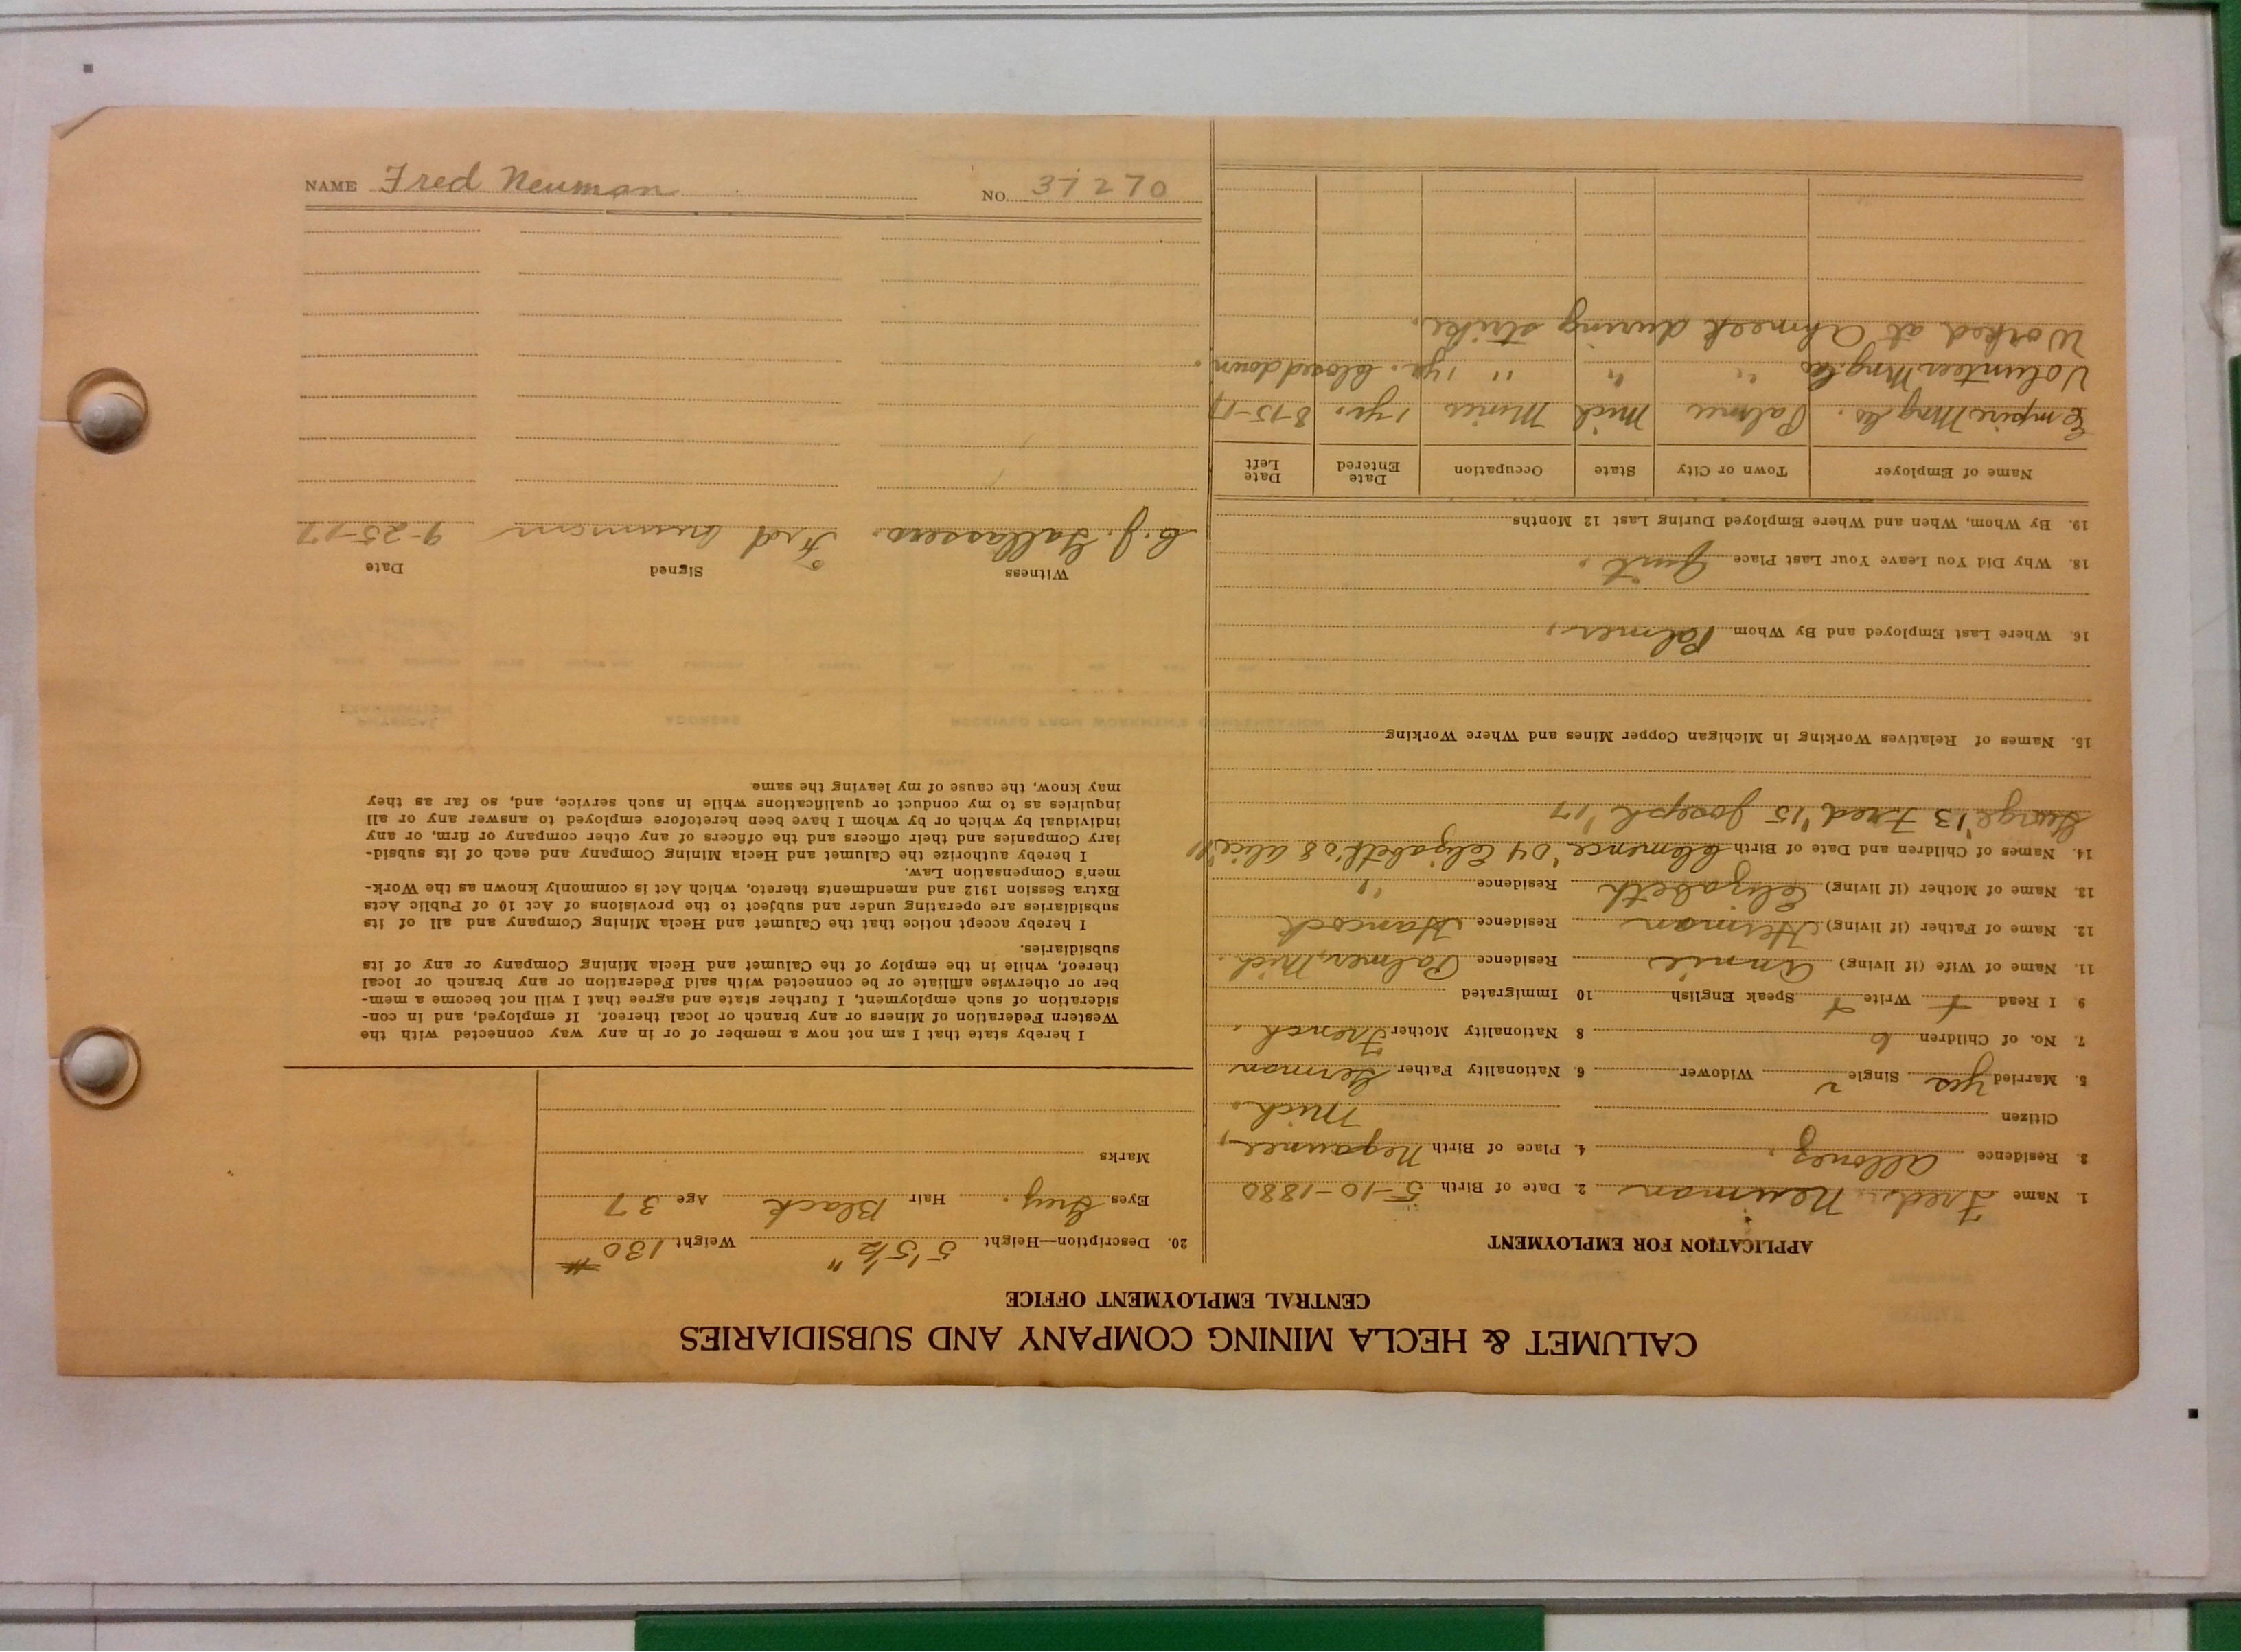 CALUMET & HECLA MINING COMPANY AND SUBSIDIARIES
CENTRAL EMPLOYMENT OFFICE
APPLICATION FOR EMPLOYMENT
1. Name Fred Neuman 2. Date of Birth 5-10-1880
3. Residence Allouez, 4. Place of Birth Negaunee,
Citizen Mich.
5. Married yes Single Widower 6. Nationality Father German
7. No. of Children 6 8 Nationality Mother French.
9. I Read + Write + Speak English 10 Immigrated
11. Name of Wife (if living) Annie Residence Palmer, Mich.
12. Name of Father (if living) Herman Residence Hancock
13. Name of Mother (if living) Elizabeth Residence "
14. Names of Children and Date of Birth Clemence '04 Elizabeth '08 Alice '11
George '13 Fred '15 Joseph '17
15. Names of Relatives Working in Michigan Copper Mines and Where Working
16. Where Last Employed and By Whom Palmer,
18. Why Did You Leave Your Last Place Quit.
19. By Whom, When and Where Employed During Last 12 Months
Name of Employer Town or City State Occupation Date Entered Date Left
Empire Mng Co. Palmer Mich Miner 1 yr. 8-15-17
Volunteer Mng. Co " " " 1 yr. Closed down
Worked at Ahmeek during strike.
20. Description—Height 5'5½" Weight 130 #
Eyes Grey. Hair Black Age 37
Marks
I hereby state that I am not now a member of or in any way connected with the
Western Federation of Miners or any branch or local thereof. If employed, and in con-
sideration of such employment, I further state and agree that I will not become a mem-
ber or otherwise affiliate or be connected with said Federation or any branch or local
thereof, while in the employ of the Calumet and Hecla Mining Company or any of its
subsidiaries.
I hereby accept notice that the Calumet and Hecla Mining Company and all of its
subsidiaries are operating under and subject to the provisions of Act 10 of Public Acts
Extra Session 1912 and amendments thereto, which Act is commonly known as the Work-
men's Compensation Law.
I hereby authorize the Calumet and Hecla Mining Company and each of its subsid-
iary Companies and their officers and the officers of any other company or firm, or any
individual by which or by whom I have been heretofore employed to answer any or all
inquiries as to my conduct or qualifications while in such service, and, so far as they
may know, the cause of my leaving the same.
Witness Signed Date
C. J. Fred Neumann 9-25-17
NAME Fred Neuman NO. 37270